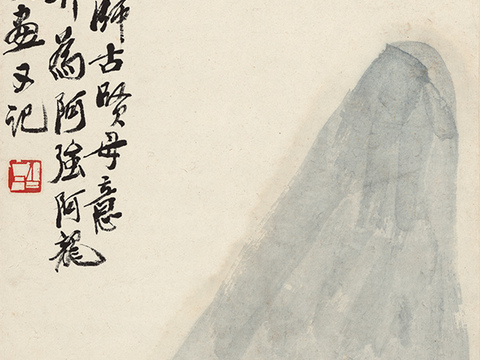 師古賢母意
為阿強阿龍
畫又記